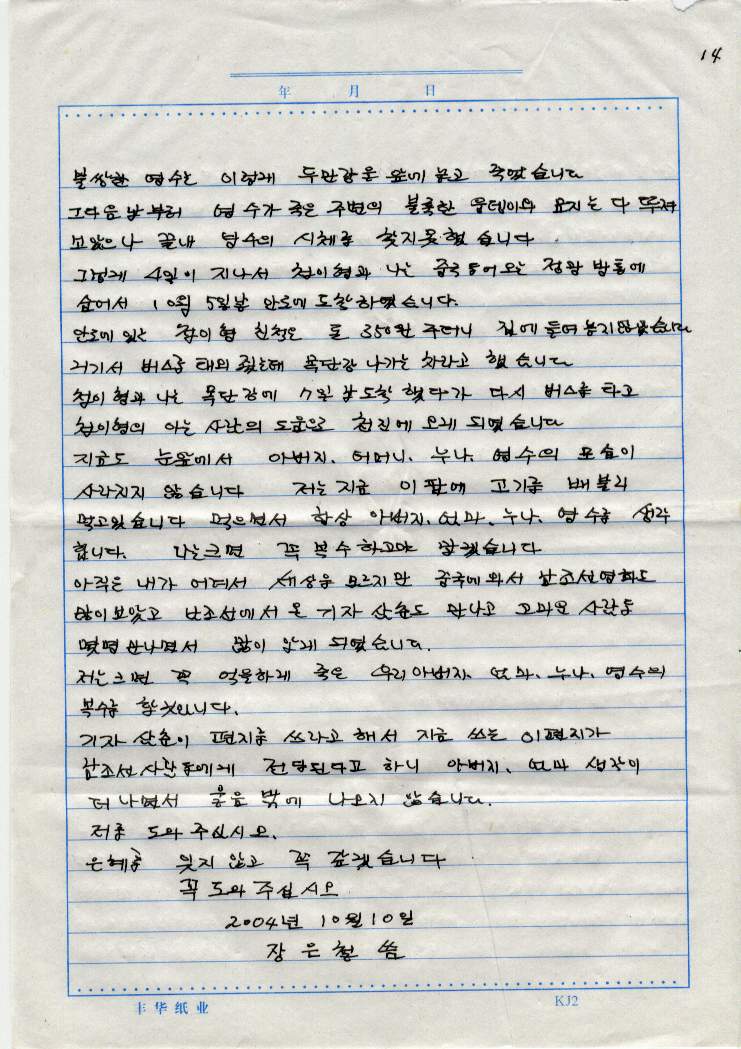 14
年 月 日
불쌍한 영수는 이렇게 두만강을 앞에 놓고 죽었습니다
그다음날부터 영수가 죽은 주변의 불룩한 웅뎅이와 묘지는 다 뚜져
보았으나 끝내 영수의 시체를 찾지못했습니다
그렇게 4일이 지나서 철이형과 나는 중국들어오는 정광 방통에
숨어서 10월 5일날 안도에 도착하였습니다.
안도에 있는 철이형 친척은 돈 350원 주더니 집에 들여놓지않았습니다
거기서 버스를 태워 줬는데 목단강 나가는 차라고 했습니다
철이형과 나는 목단강에 7일날 도착했다가 다시 버스를 타고
철이형의 아는 사람의 도움으로 천진에 오게 되였습니다
지금도 눈앞에서 아버지, 어머니, 누나, 영수의 모습이
사라지지 않습니다 저는 지금 이팝에 고기를 배불리
먹고있습니다 먹으면서 항상 아버지, 엄마, 누나, 영수를 생각
합니다. 나는크면 꼭 복수하고야 말겠습니다
아직은 내가 어려서 세상을 모르지만 중국에와서 남조선영화도
많이보았고 남조선에서 온 기자 삼촌도 만나고 고마운 사람들
몇명 만나면서 많이 알게 되였습니다.
저는크면 꼭 억울하게 죽은 우리아버지, 엄마, 누나, 영수의
복수를 할것입니다.
기자 삼촌이 편지를 쓰라고 해서 지금 쓰는 이편지가
남조선사람들에게 전달된다고 하니 아버지, 엄마 생각이
더 나면서 울음 밖에 나오지 않습니다.
저를 도와 주십시오.
은혜를 잊지 않고 꼭 갚겠습니다
꼭 도와 주십시오
2004년 10월 10일
장 은 철 씀
丰华纸业 KJ2